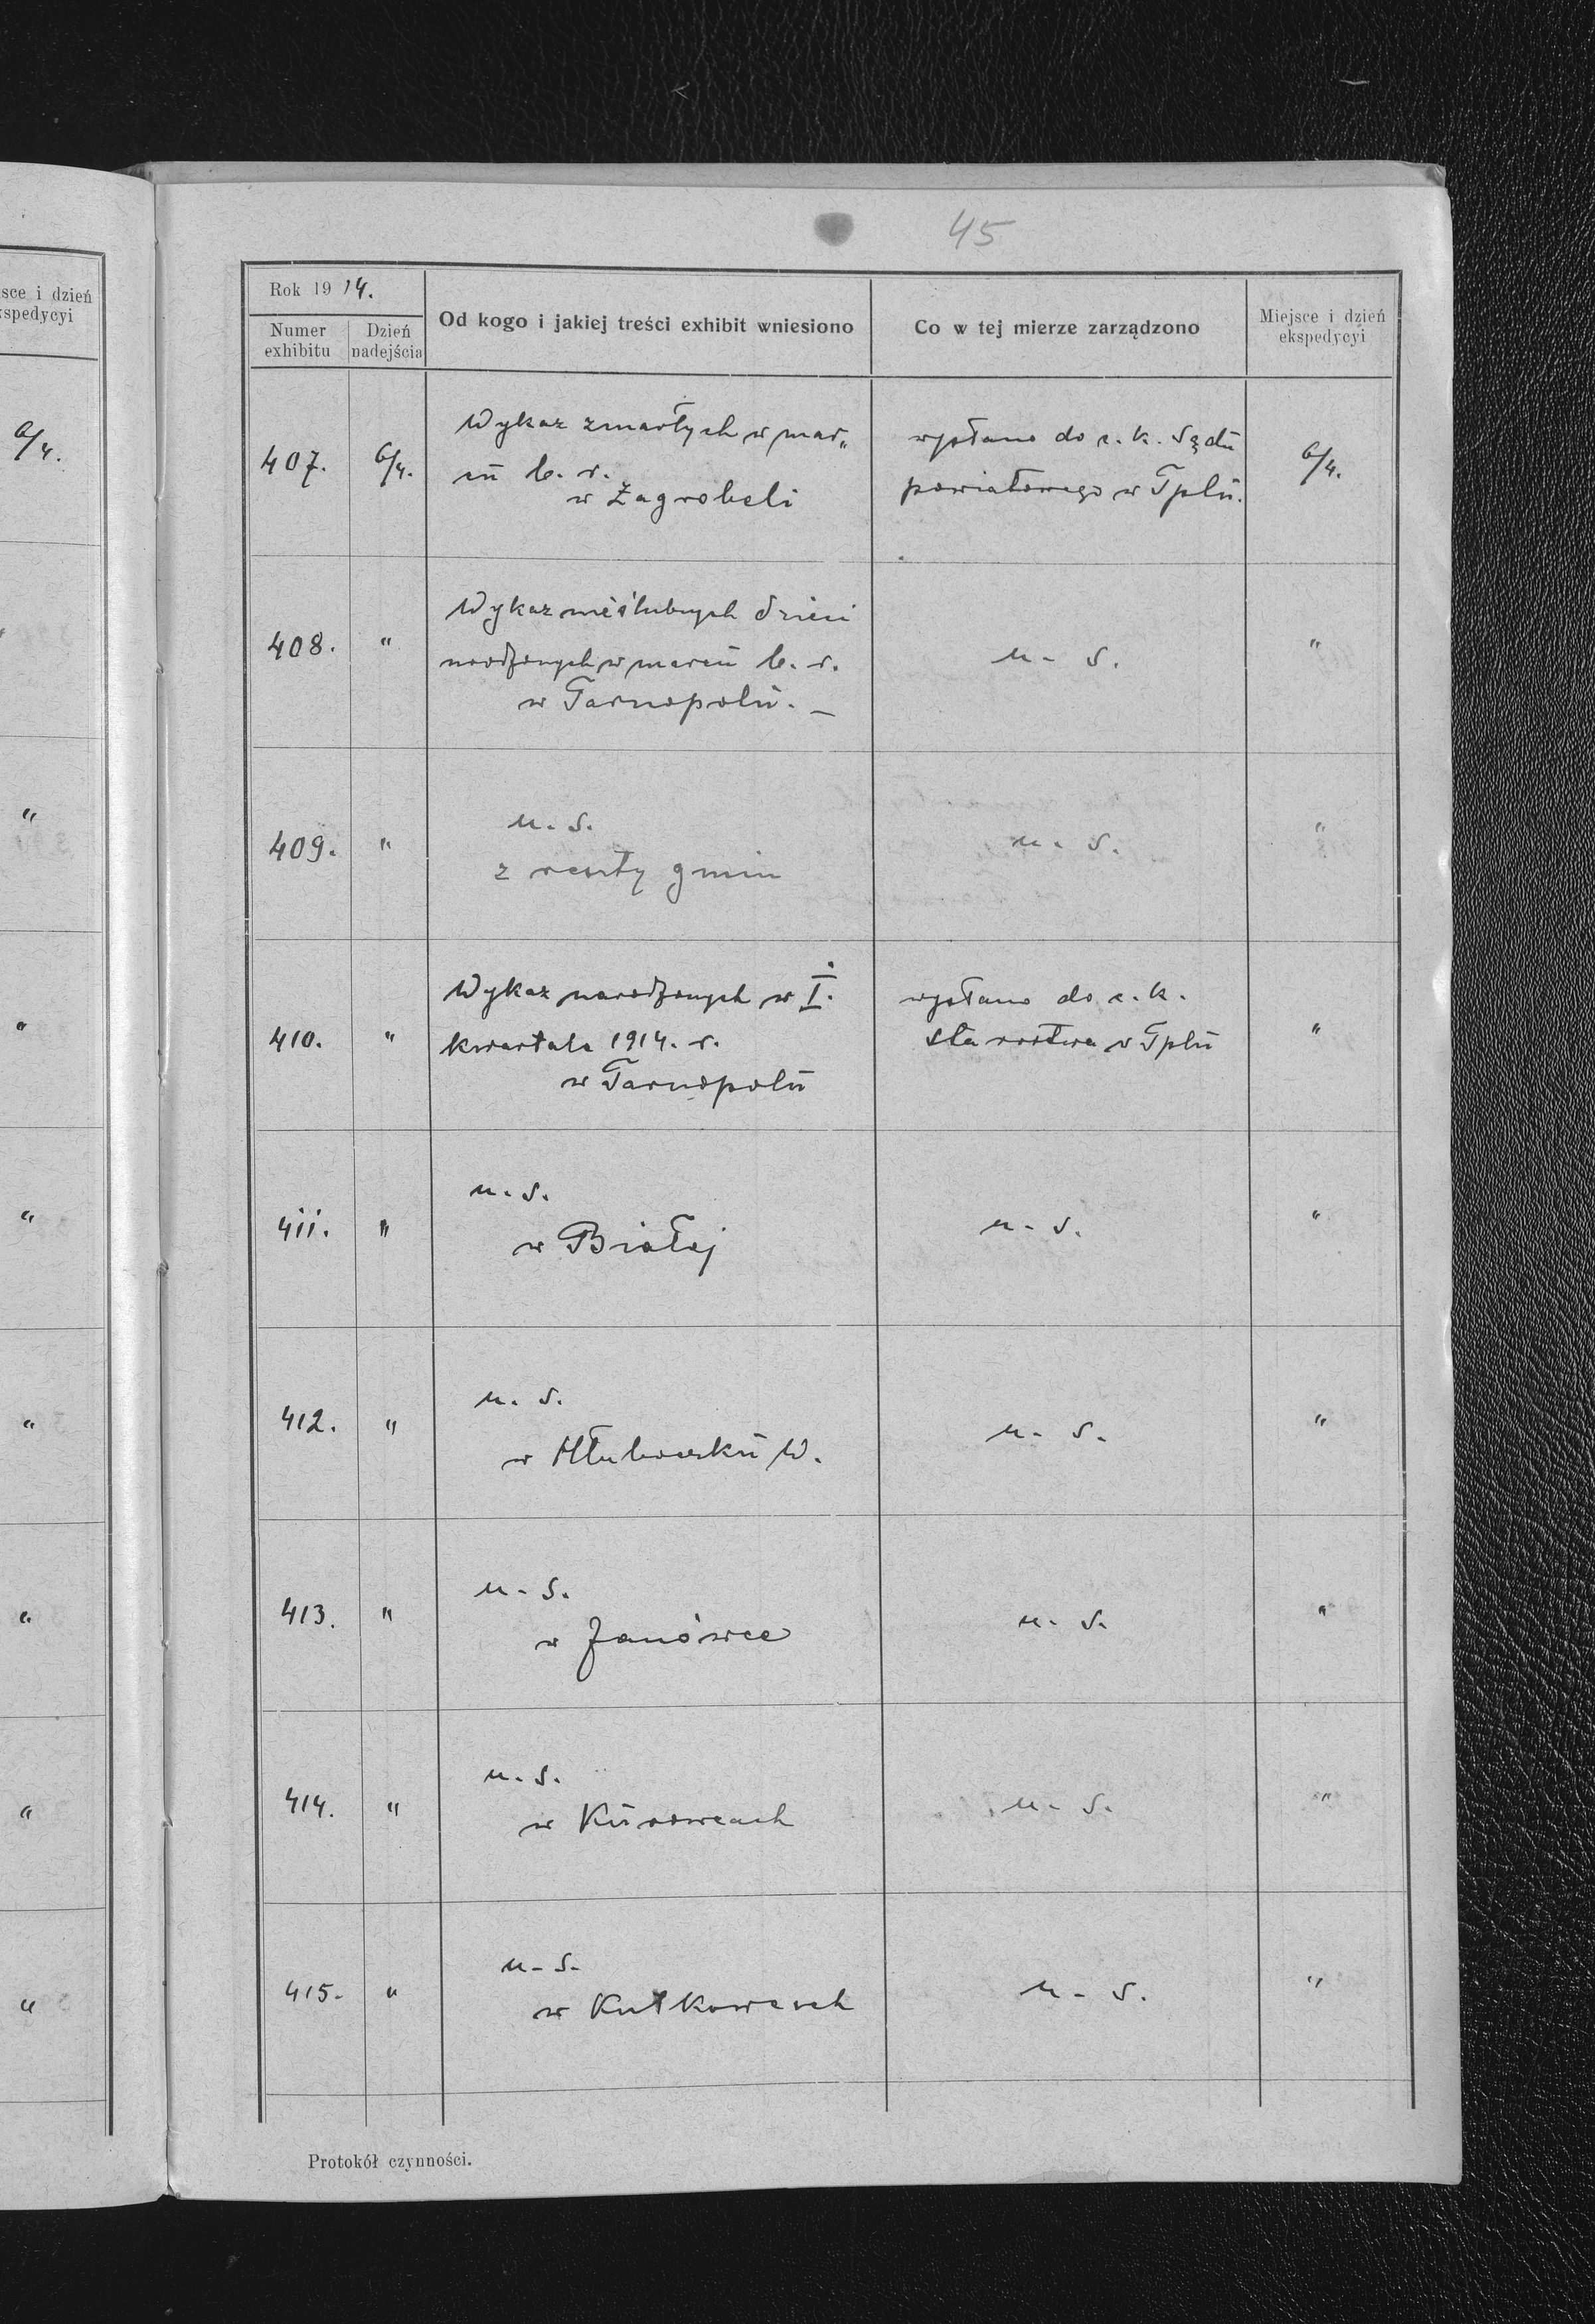 45
sce i dzień
spedycyi
6/4.
"
"
"
"
"
"
"
Rok 1914.
Numer exhibitu
Dzień nadejścia
Od kogo i jakiej treści exhibit wniesiono
Co w tej mierze zarządzono
Miejsce i dzień ekspedycyi
407. 6/4.
Wykaz zmarłych w mar„
cu b. r.
w Zagrobeli
wysłano do c. k. Sądu
powiatowego w Tplu.
6/4.
408. "
Wykaz nieślubnych dzieci
urodzonych w marcu b. r.
w Tarnopolu. —
u. s.
"
409. "
u. s.
z reszty gmin
u. s.
"
410. "
Wykaz narodzonych w I.
kwartale 1914. r.
w Tarnopolu
wysłano do c. k.
starostwa w Tplu
"
411. "
u. s.
w Białej
u. s.
"
412. "
u. s.
w Hłuboczku W.
u. s.
"
413. "
u. s.
w Janówce
u. s.
"
414. "
u. s.
w Kurowcach
u. s.
"
415. "
u. s.
w Kutkowcach
u. s.
"
Protokół czynności.